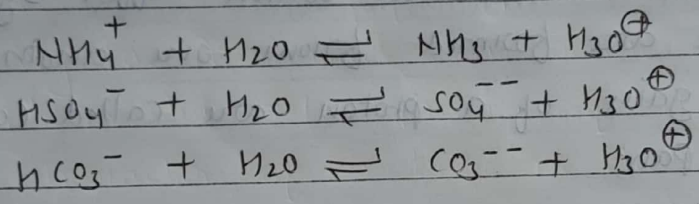 NH4+ + H2O ⇌ NH3 + H3O⊕
HSO4- + H2O ⇌ SO4-- + H3O⊕
HCO3- + H2O ⇌ CO3-- + H3O⊕